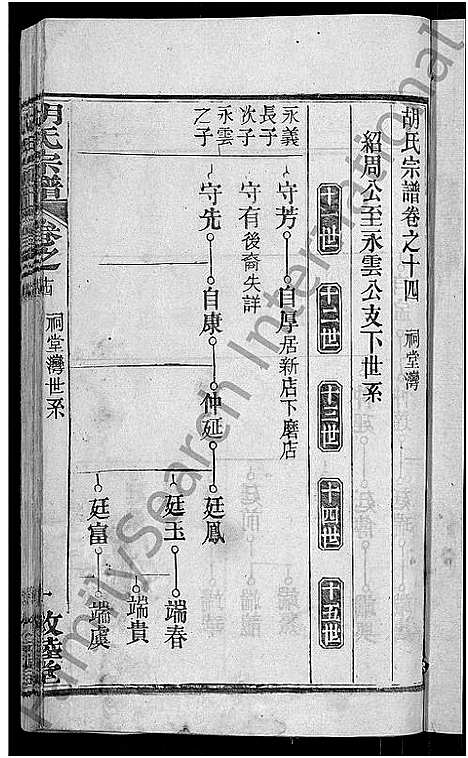 胡氏宗譜卷之十四 祠堂灣
紹周公至永雲公支下世系
十一世 十二世 十三世 十四世 十五世
永義長子 守芳 自厚 居新店下磨店
次子 守有 後裔失詳
永雲之子 守先 自康 仲延 廷鳳
廷玉 端春
端貴
廷富 端虞
胡氏宗譜 卷之十四 祠堂灣世系 一 敦睦堂
FamilySearch International